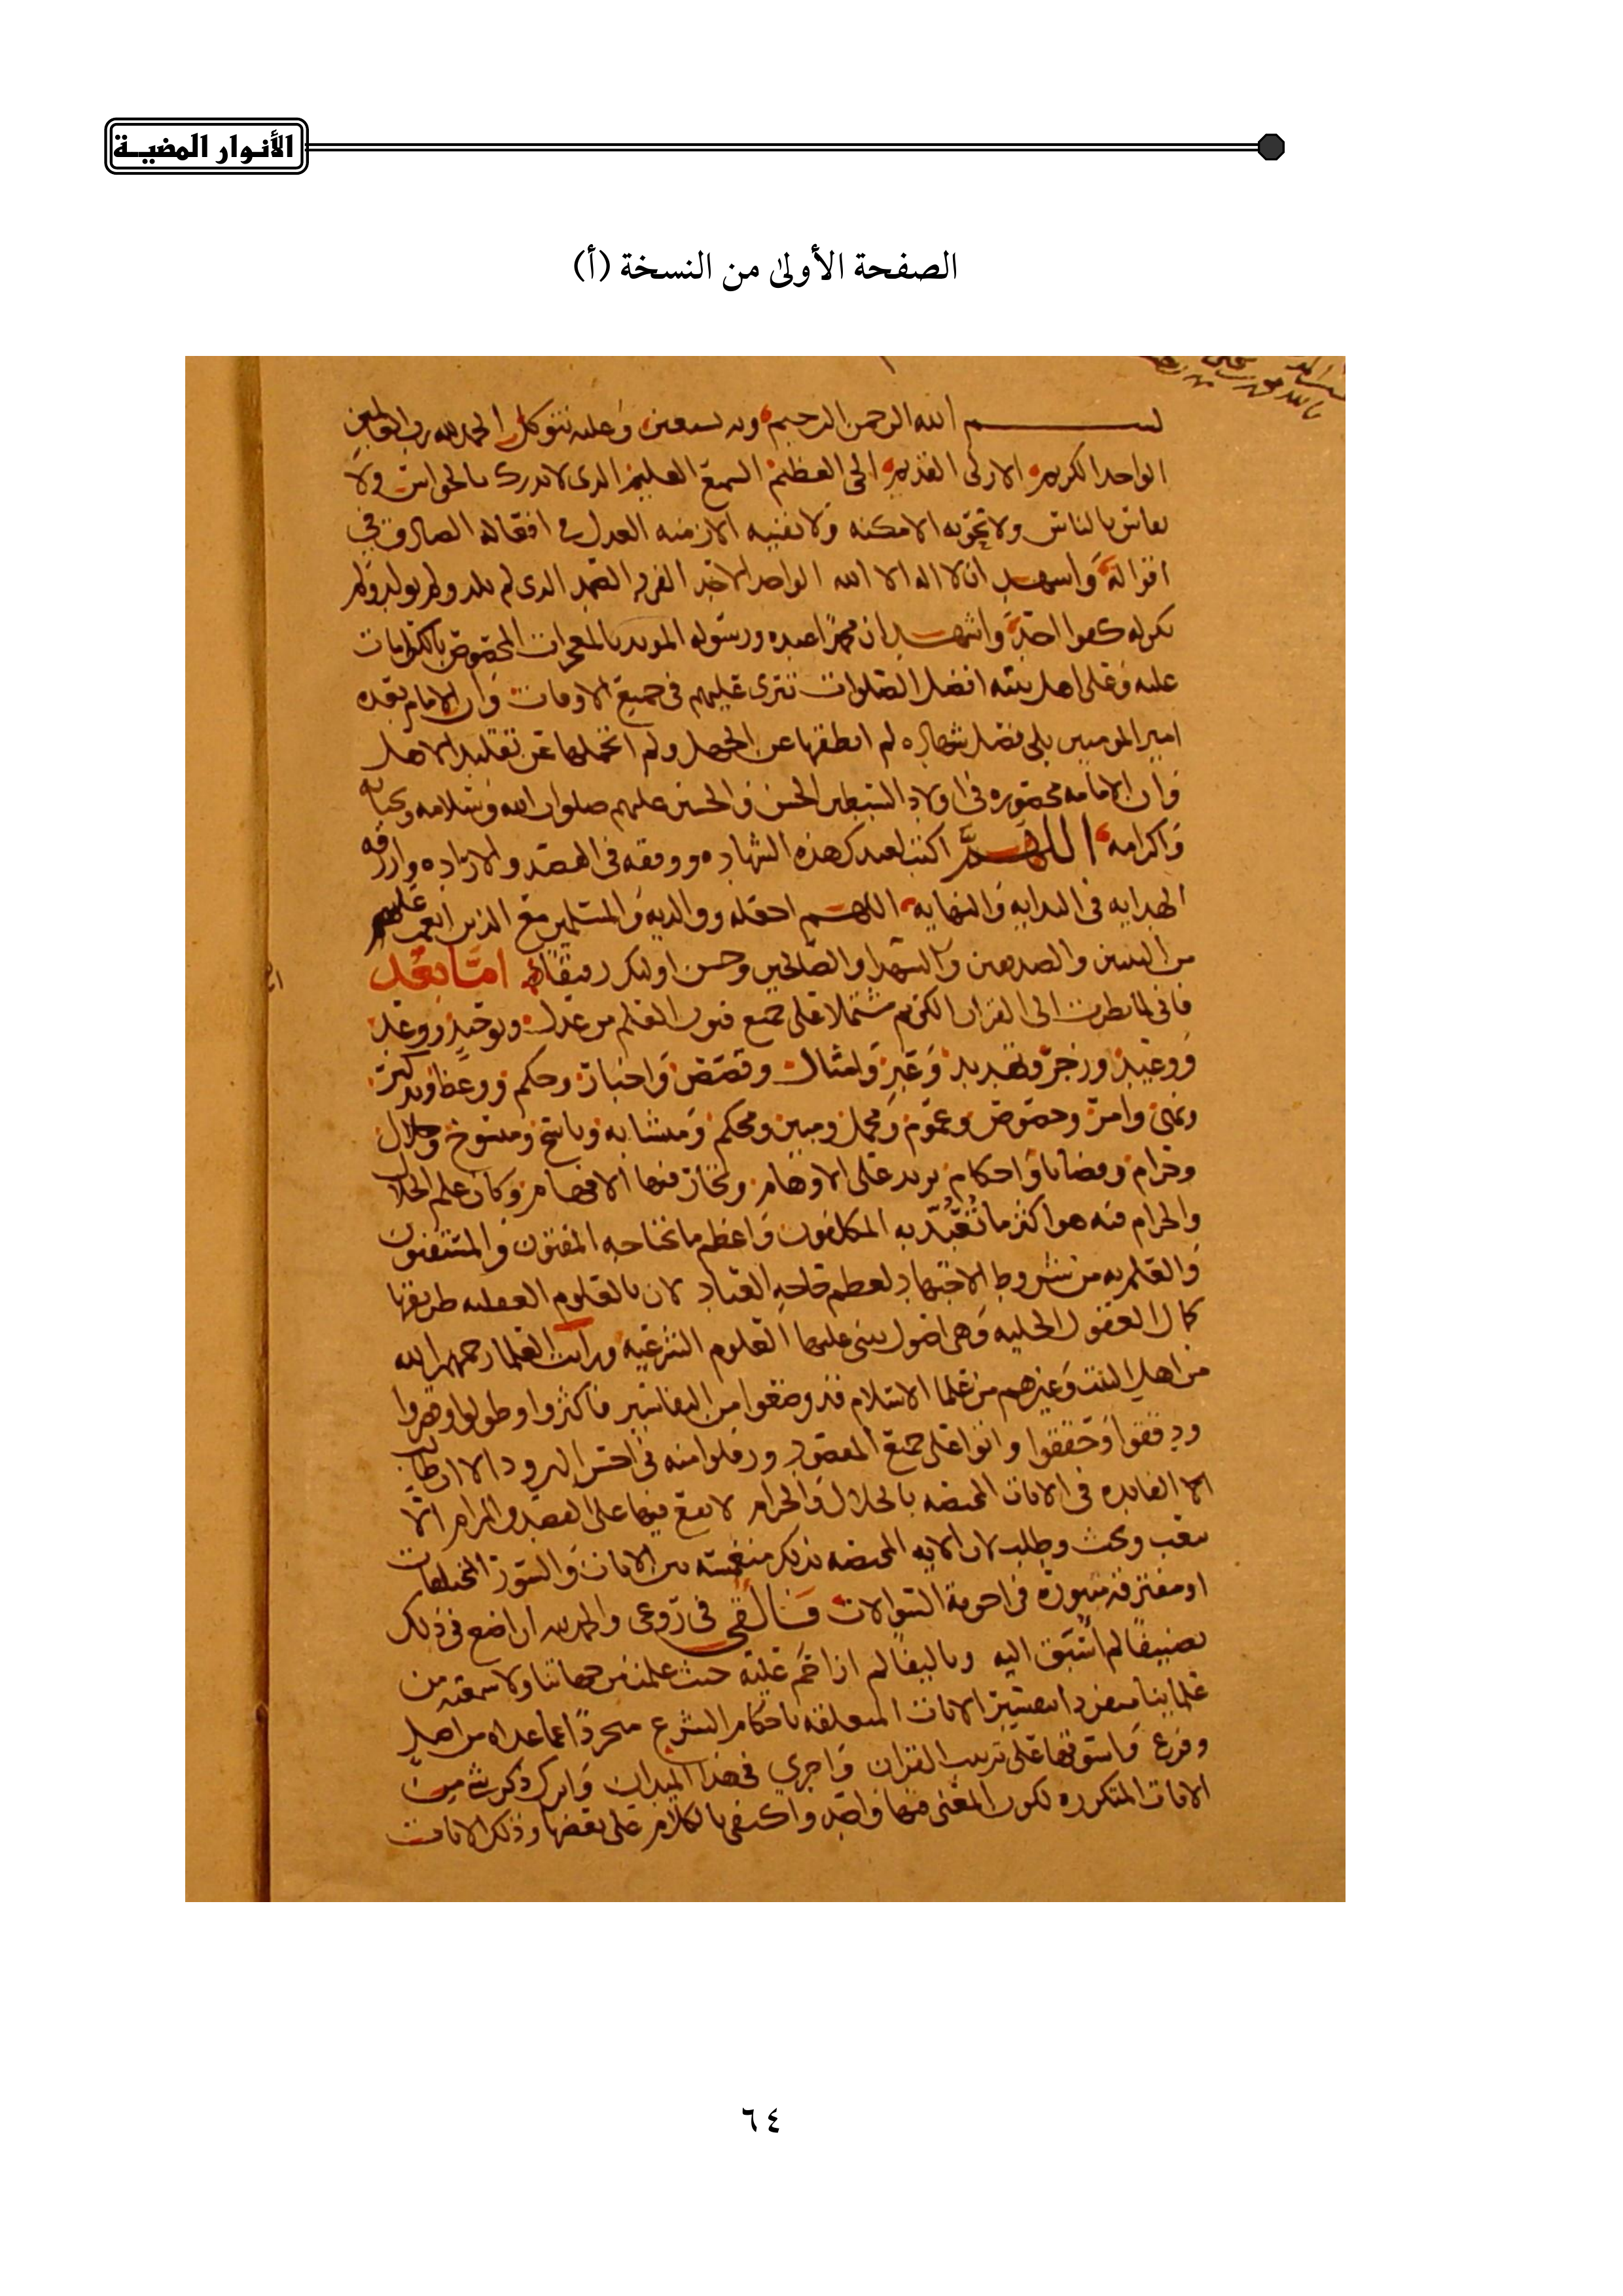 الأنـوار المضيــة
الصفحة الأولىٰ من النسخة (أ)
بســـم الله الرحمن الرحيم وبه نستعين وعليه نتوكل الحمد لله رب العالمين
الواحد الكريم الازلي القديم الحي العظيم السميع العليم الذي لا يدرك بالحواس ولا
يقاس بالناس ولا تحويه الامكنه ولا تفنيه الازمنه العدل في افعاله الصادق في
اقواله واشهد ان لا اله الا الله الواحد الاحد الفرد الصمد الذي لم يلد ولم يولد ولم
يكن له كفوا احد واشهد ان محمدا عبده ورسوله المويد بالمعجزات المخصوص بالكرامات
عليه وعلى اهل بيته افضل الصلوات تترى عليهم في جميع الاوقات وان الامام بعده
امير المومنين بلى فصل شهاده لم انطقها عن الجهل ولم انحلها عن تقليد الاهل
وان الامامه محصوره في اولاد السبطين الحسن والحسين عليهم صلوات الله وسلامه وتحياته
واكرامه اللهم اكتب لعبدك هذه الشهاده ووفقه في القصد والاراده وارزقه
الهدايه في البدايه والنهايه اللهم اجعله ووالديه والمسلمين مع الذين انعمت عليهم
من النبيين والصديقين والشهدا والصالحين وحسن اوليك رفيقا اما بعد
فاني لما نظرت الى القران الكريم مشتملا على جميع فنون العلم من عدل وتوحيد ووعد
ووعيد وزجر وتهديد وعبر وامثال وقصص واخبار وحكم ووعظ وتذكير
ونهي وامر وخصوص وعموم ومجمل ومبين ومحكم ومتشابه وناسخ ومنسوخ وحلال
وحرام وقضايا واحكام يزيد على الاوهام وتحار فيها الافهام وكان علم الحلال
والحرام فيه هو اكثر ما تُعُبِّد به المكلفون واعظم ما يحتاجه المفتون والمستفتون
والعلم به من شروط الاجتهاد لعظم حاجه العباد لان بالعلوم العقليه طريقها
كمال العقول الجليه وهي اصول يبنى عليها العلوم الشرعيه ورايت العلما رحمهم الله
من اهل البيت وغيرهم من علما الاسلام قد وضعوا من التفاسير فاكثروا وطولوا وقصروا
ودققوا وحققوا واتوا على جميع المقصود ورفلوا منه في احسن البرود الا ان طالب
الفايده في الايات المختصه بالحلال والحرام لا يقع فيها على القصد والمرام الا
بتعب وبحث وطلب لان الايه المختصه بذلك منغمسه بين الايات والسور المختلفات
او مفترقه في اجوبة السوالات فالقي في روعي والحمد لله ان اضع في ذلك
تصنيفا لم اُسبق اليه وتاليفا لم ازاحم عليه حيث علمت من جهاتنا ولا سمعته من
علماينا منفردا بتفسير الايات المتعلقه باحكام الشرع مجردا عما عداه من اصل
وفرع واستوفيها على ترتيب القران واجري في هذا الميدان واترك ذكر شي من
الايات المتكرره لكون المعنى فيها واحد واكتفي بالكلام على بعضها وذلك الايات
٦٤